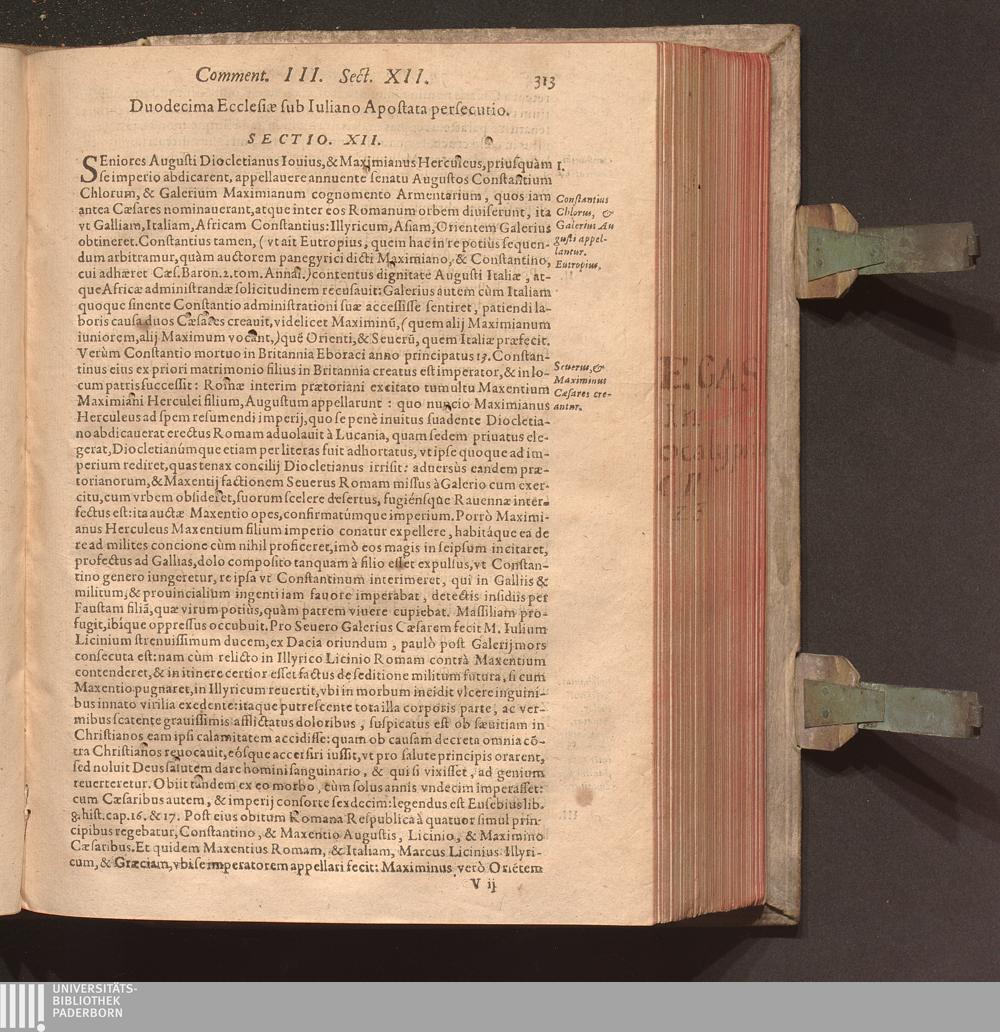 Comment. III. Sect. XII. 313
Duodecima Ecclesiæ sub Iuliano Apostata persecutio.
SECTIO. XII.
SEniores Augusti Diocletianus Iouius, & Maximianus Herculeus, priusquàm I.
se imperio abdicarent, appellauere annuente senatu Augustos Constantium
Chlorum, & Galerium Maximianum cognomento Armentarium, quos iam
antea Cæsares nominauerant, atque inter eos Romanum orbem diuiserunt, ita
vt Galliam, Italiam, Africam Constantius: Illyricum, Asiam, Orientem Galerius
obtineret. Constantius tamen, (vt ait Eutropius, quem hac in re potiùs sequen-
dum arbitramur, quàm auctorem panegyrici dicti Maximiano, & Constantino,
cui adhæret Cæs. Baron. 2. tom. Annal.) contentus dignitate Augusti Italiæ, at-
que Africæ administrandæ solicitudinem recusauit: Galerius autem cùm Italiam
quoque sinente Constantio administrationi suæ accessisse sentiret, patiendi la-
boris causa duos Cæsares creauit, videlicet Maximinū, (quem alij Maximianum
iuniorem, alij Maximum vocant,) quē Orienti, & Seuerū, quem Italiæ præfecit.
Verùm Constantio mortuo in Britannia Eboraci anno principatus 13. Constan-
tinus eius ex priori matrimonio filius in Britannia creatus est imperator, & in lo-
cum patris successit: Romæ interim prætoriani excitato tumultu Maxentium
Maximiani Herculei filium, Augustum appellarunt: quo nuncio Maximianus
Herculeus ad spem resumendi imperij, quo se penè inuitus suadente Diocletia-
no abdicauerat erectus Romam aduolauit à Lucania, quam sedem priuatus ele-
gerat, Diocletianúmque etiam per literas fuit adhortatus, vt ipse quoque ad im-
perium rediret, quas tenax concilij Diocletianus irrisit: aduersùs eandem præ-
torianorum, & Maxentij factionem Seuerus Romam missus à Galerio cum exer-
citu, cum vrbem obsideret, suorum scelere desertus, fugiénsque Rauennæ inter-
fectus est: ita auctæ Maxentio opes, confirmatúmque imperium. Porrò Maximi-
anus Herculeus Maxentium filium imperio conatur expellere, habitáque ea de
re ad milites concione cùm nihil proficeret, imò eos magis in seipsum incitaret,
profectus ad Gallias, dolo composito tanquam à filio esset expulsus, vt Constan-
tino genero iungeretur, re ipsa vt Constantinum interimeret, qui in Galliis &
militum, & prouincialium ingenti iam fauore imperabat, detectis insidiis per
Faustam filiā, quæ virum potiùs, quàm patrem viuere cupiebat. Massiliam pro-
fugit, ibíque oppressus occubuit. Pro Seuero Galerius Cæsarem fecit M. Iulium
Licinium strenuissimum ducem, ex Dacia oriundum, paulò post Galerij mors
consecuta est: nam cùm relicto in Illyrico Licinio Romam contrà Maxentium
contenderet, & in itinere certior esset factus de seditione militum futura, si cum
Maxentio pugnaret, in Illyricum reuertit, vbi in morbum incidit vlcere inguini-
bus innato virilia exedente: itaque putrescente tota illa corporis parte, ac ver-
mibus scatente grauissimis afflictatus doloribus, suspicatus est ob sæuitiam in
Christianos eam ipsi calamitatem accidisse: quam ob causam decreta omnia cō-
tra Christianos reuocauit, eósque accersiri iussit, vt pro salute principis orarent,
sed noluit Deus salutem dare homini sanguinario, & qui si vixisset, ad genium
reuerteretur. Obiit tandem ex eo morbo, cùm solus annis vndecim imperasset:
cum Cæsaribus autem, & imperij consorte sexdecim: legendus est Eusebius lib.
8. hist. cap. 16. & 17. Post eius obitum Romana Respublica à quatuor simul prin-
cipibus regebatur, Constantino, & Maxentio Augustis, Licinio, & Maximino
Cæsaribus. Et quidem Maxentius Romam, & Italiam, Marcus Licinius Illyri-
cum, & Græciam, vbi se imperatorem appellari fecit: Maximinus verò Oriētem
V ij
Constantius
Chlorus, &
Galerius Au
gusti appel-
lantur.
Eutropius.
Seuerus, &
Maximinus
Cæsares cre-
antur.
UNIVERSITÄTS-
BIBLIOTHEK
PADERBORN